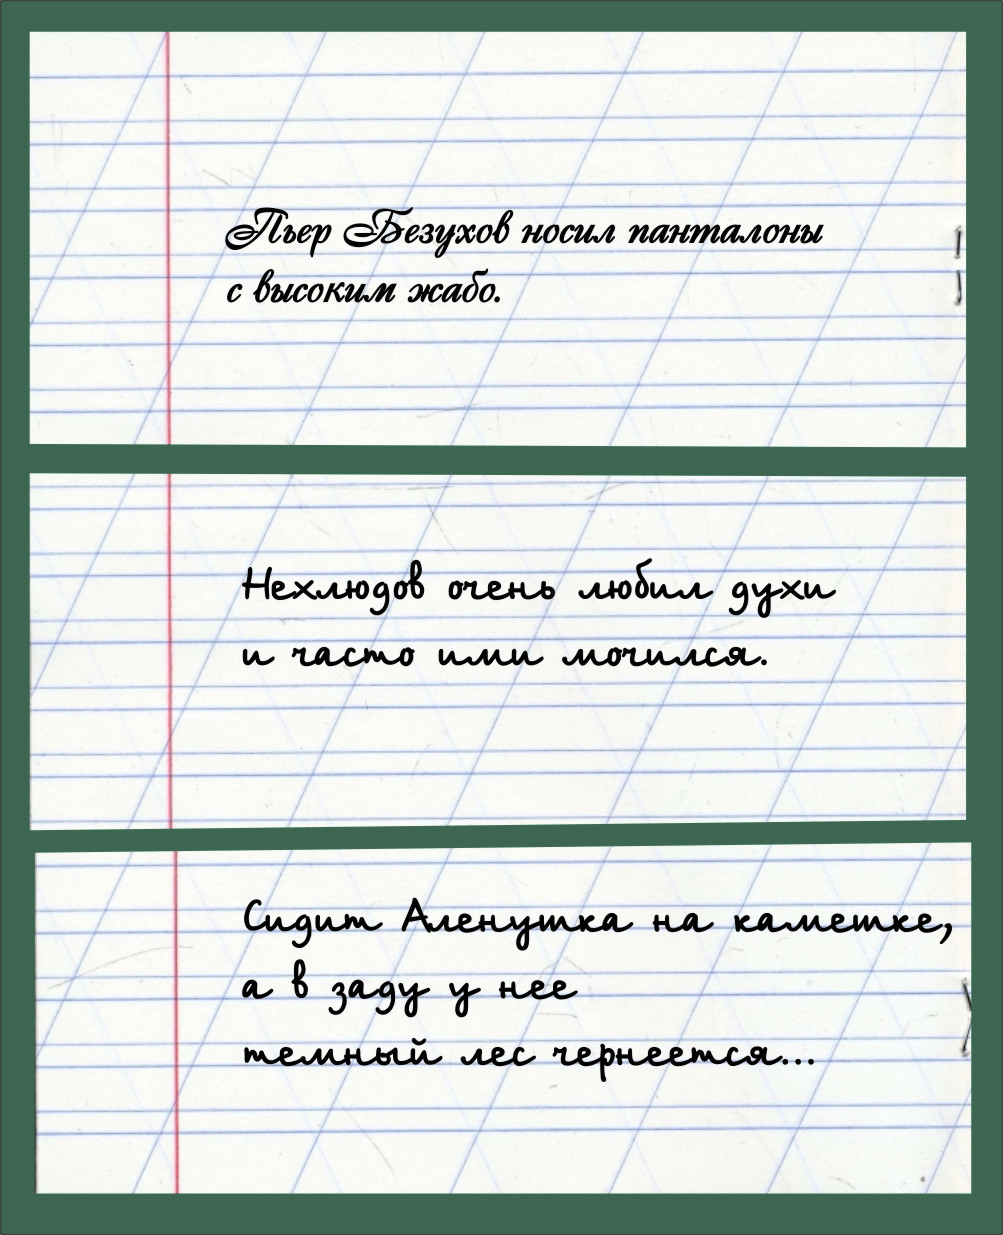 Пьер Безухов носил панталоны
с высоким жабо.
Нехлюдов очень любил духи
и часто ими мочился.
Сидит Аленушка на каметке,
а в заду у нее
темный лес чернеется...